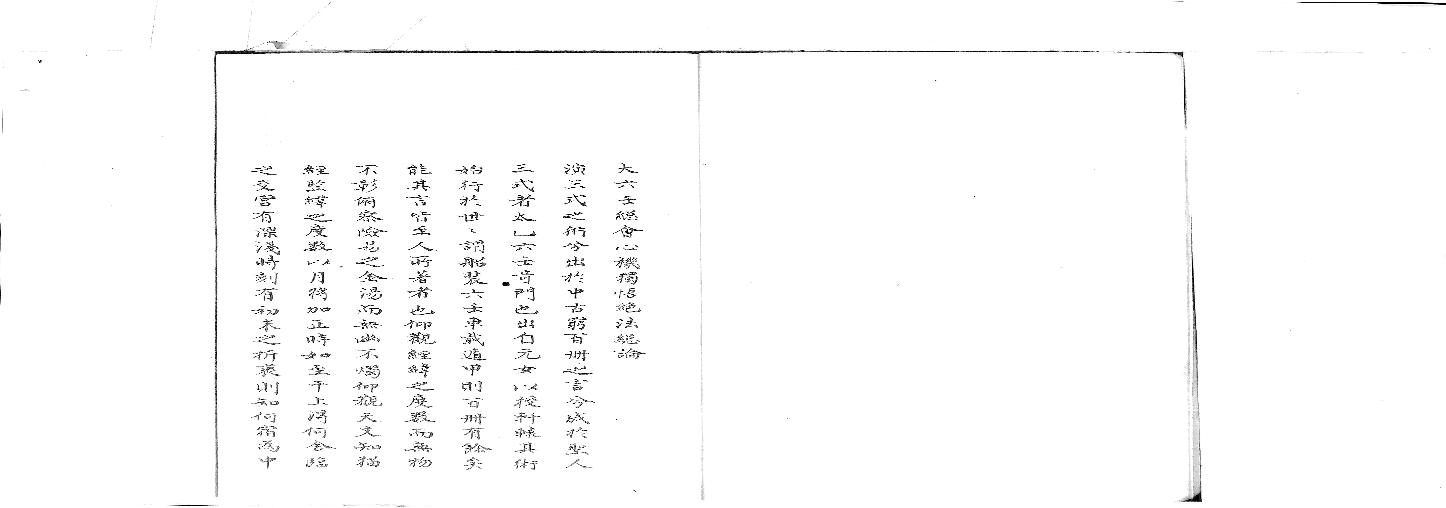 大六壬總會心機獨悟絕法總論
演三式之術兮出於中古窮百冊之言兮成於聖人
三式者太乙六壬奇門也出自元女以授軒轅其術
始行於世〻謂船裝六壬車載遁甲則百冊有餘矣
能其言皆至人所著者也仰觀經緯之度數而無物
不彰俯察險易之金湯而無幽不燭仰觀天文知
經監緯之度數以月將加正時如至干上得何会臨
之交宮有深淺時刻有初末之析衷則知何宿為中